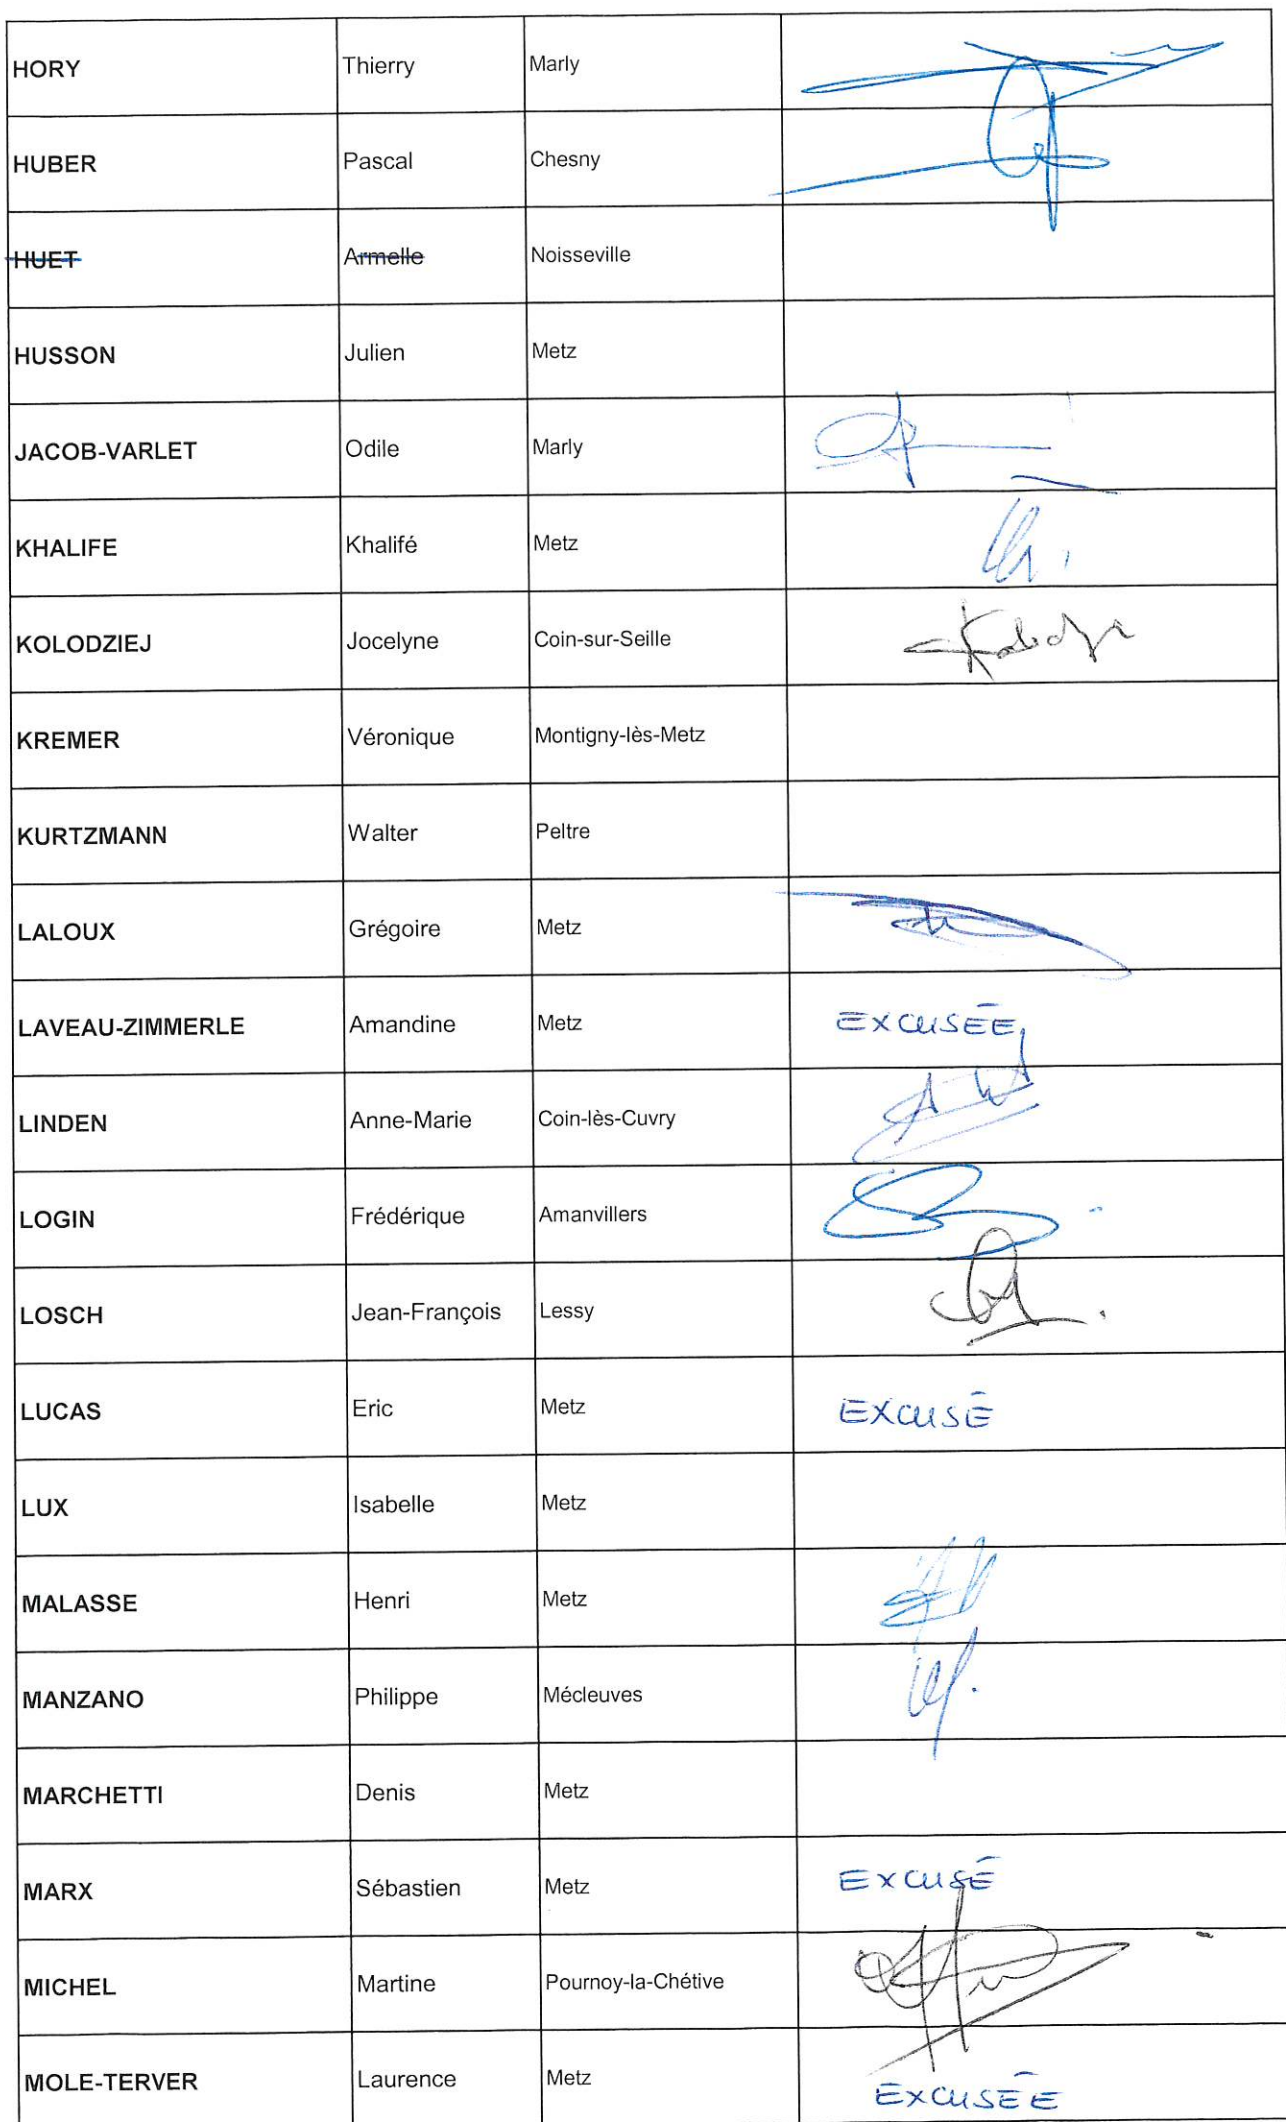 HORY Thierry Marly
HUBER Pascal Chesny
HUET Armelle Noisseville
HUSSON Julien Metz
JACOB-VARLET Odile Marly
KHALIFE Khalifé Metz
KOLODZIEJ Jocelyne Coin-sur-Seille
KREMER Véronique Montigny-lès-Metz
KURTZMANN Walter Peltre
LALOUX Grégoire Metz
LAVEAU-ZIMMERLE Amandine Metz EXCUSÉE
LINDEN Anne-Marie Coin-lès-Cuvry
LOGIN Frédérique Amanvillers
LOSCH Jean-François Lessy
LUCAS Eric Metz EXCUSÉ
LUX Isabelle Metz
MALASSE Henri Metz
MANZANO Philippe Mécleuves
MARCHETTI Denis Metz
MARX Sébastien Metz EXCUSÉ
MICHEL Martine Pournoy-la-Chétive
MOLE-TERVER Laurence Metz EXCUSÉE